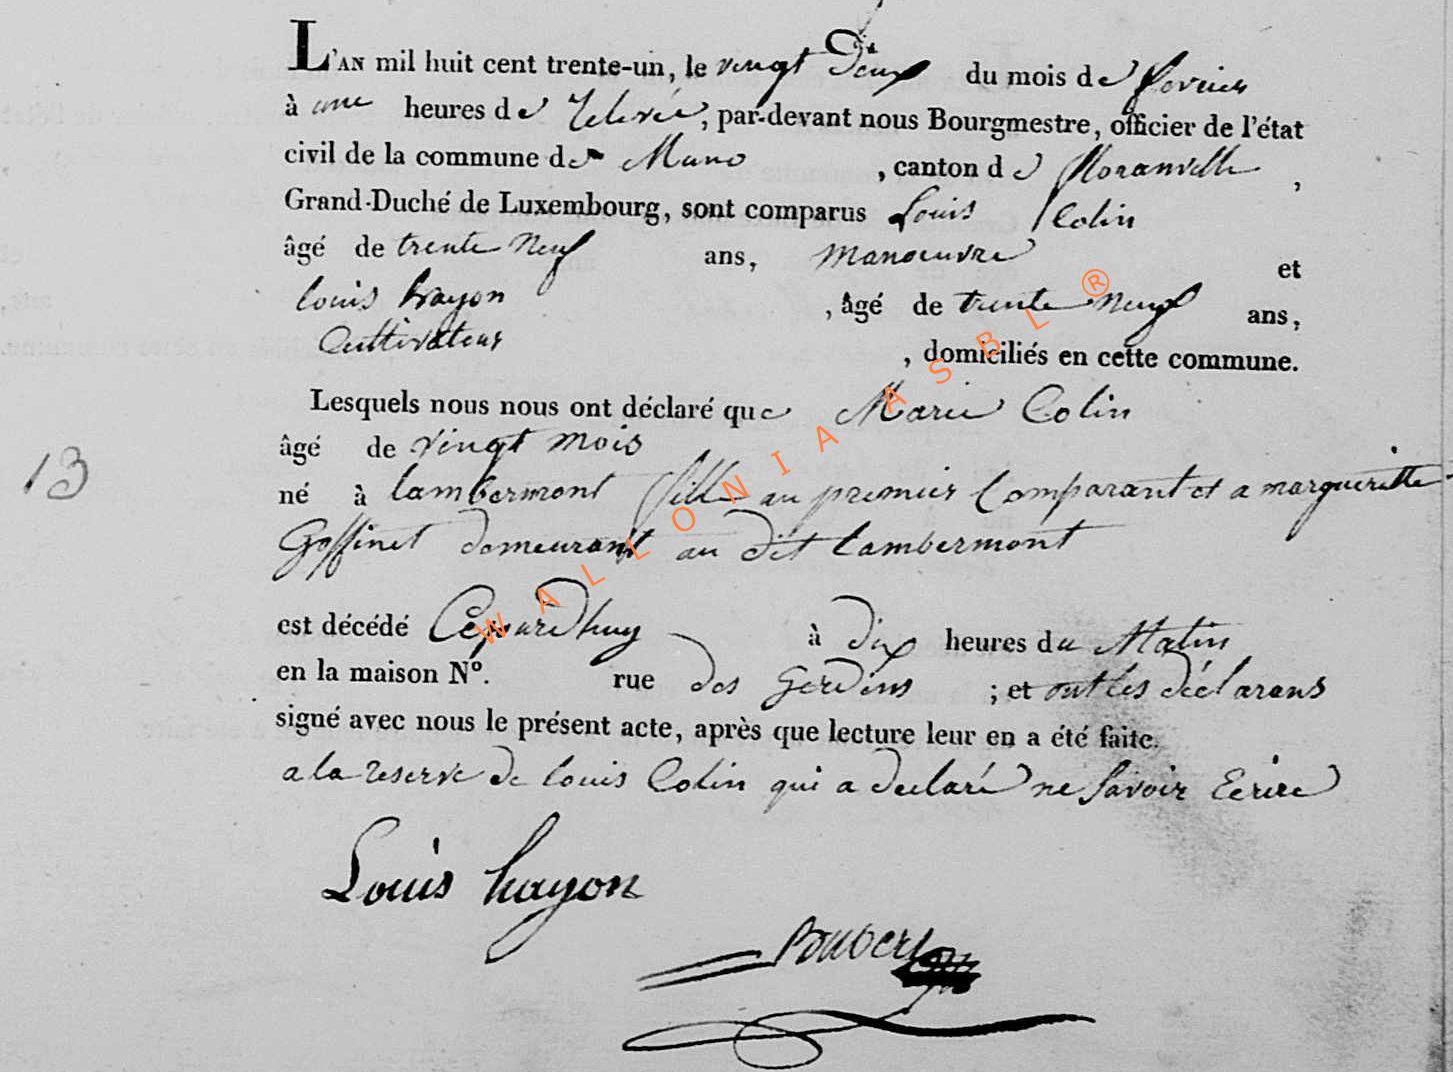 L'AN mil huit cent trente-un, le vingt Deux du mois de fevrier
à une heures de relevée, par-devant nous Bourgmestre, officier de l'état
civil de la commune de Muno , canton de floranville ,
Grand-Duché de Luxembourg, sont comparus Louis Colin
âgé de trente neuf ans, manoeuvre et
louis hayon , âgé de trente neuf ans,
Cultivateur , domiciliés en cette commune.
Lesquels nous nous ont déclaré que Marie Colin
âgé de vingt mois
13
né à lambermont fille au premier Comparant et a marguerite
Goffinet domeurant au dit lambermont
est décédé Cejourdhuy à dix heures du Matin
en la maison N°. rue des Gerdins ; et ont les déclarans
signé avec nous le présent acte, après que lecture leur en a été faite.
a la reserve de louis Colin qui a declaré ne Savoir Ecrire
Louis hayon
WALLONIA ASBL ®